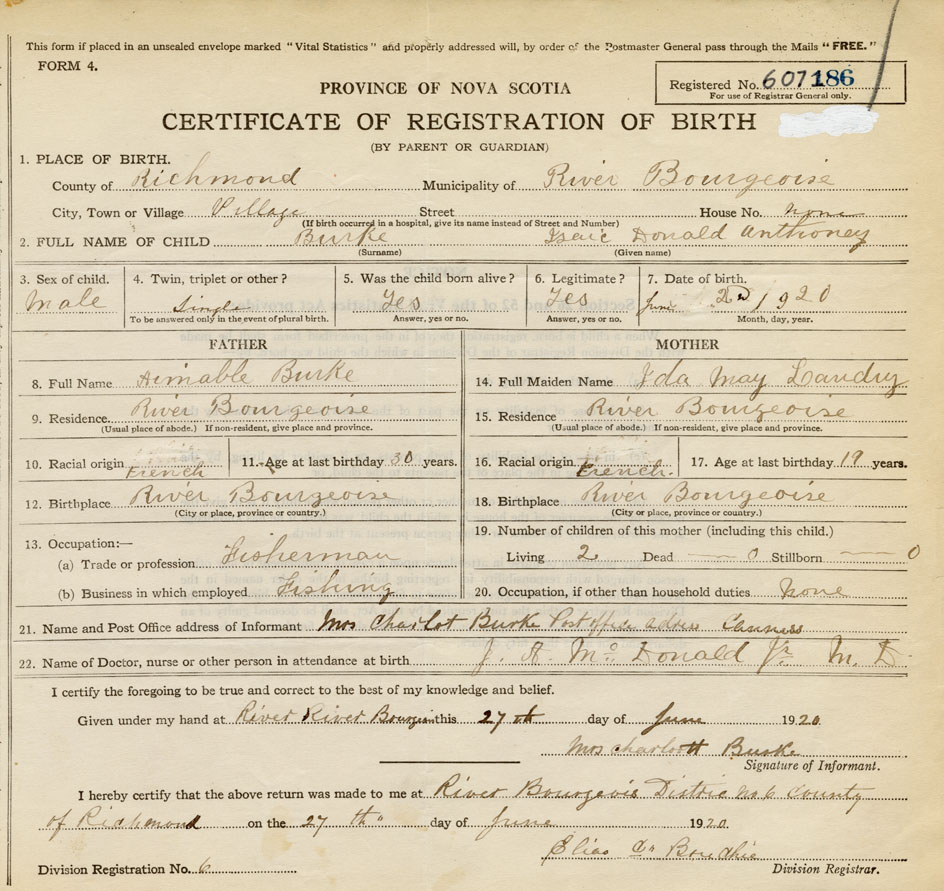 This form if placed in an unsealed envelope marked "Vital Statistics" and properly addressed will, by order of the Postmaster General pass through the Mails "FREE."
FORM 4.
Registered No. 607186
For use of Registrar General only.
PROVINCE OF NOVA SCOTIA
CERTIFICATE OF REGISTRATION OF BIRTH
(BY PARENT OR GUARDIAN)
1. PLACE OF BIRTH.
County of Richmond Municipality of River Bourgeoise
City, Town or Village Village Street House No. none
(If birth occurred in a hospital, give its name instead of Street and Number)
2. FULL NAME OF CHILD Burke Isaic Donald Anthoney
(Surname) (Given name)
3. Sex of child. 4. Twin, triplet or other? 5. Was the child born alive? 6. Legitimate? 7. Date of birth.
Male Single Yes Yes June 1920
To be answered only in the event of plural birth. Answer, yes or no. Answer, yes or no. Month, day, year.
FATHER MOTHER
8. Full Name Aimable Burke 14. Full Maiden Name Ida May Landry
9. Residence. River Bourgeoise 15. Residence River Bourgeoise
(Usual place of abode.) If non-resident, give place and province. (Usual place of abode.) If non-resident, give place and province.
10. Racial origin French 11. Age at last birthday 30 years. 16. Racial origin French. 17. Age at last birthday 19 years.
12. Birthplace River Bourgeoise 18. Birthplace River Bourgeoise
(City or place, province or country.) (City or place, province or country.)
13. Occupation:— 19. Number of children of this mother (including this child.)
(a) Trade or profession Fisherman Living 2 Dead 0 Stillborn 0
(b) Business in which employed Fishing 20. Occupation, if other than household duties None
21. Name and Post Office address of Informant Mrs Charlot Burke Post office adress
22. Name of Doctor, nurse or other person in attendance at birth J. A. Mc Donald Jr M. D.
I certify the foregoing to be true and correct to the best of my knowledge and belief.
Given under my hand at River River this 27th day of June 1920
Mrs Charlott Burke
Signature of Informant.
I hereby certify that the above return was made to me at River Bourgeois Distric No 6 County
of Richmond on the 27 th day of June 1920.
Elias
Division Registration No. 6 Division Registrar.